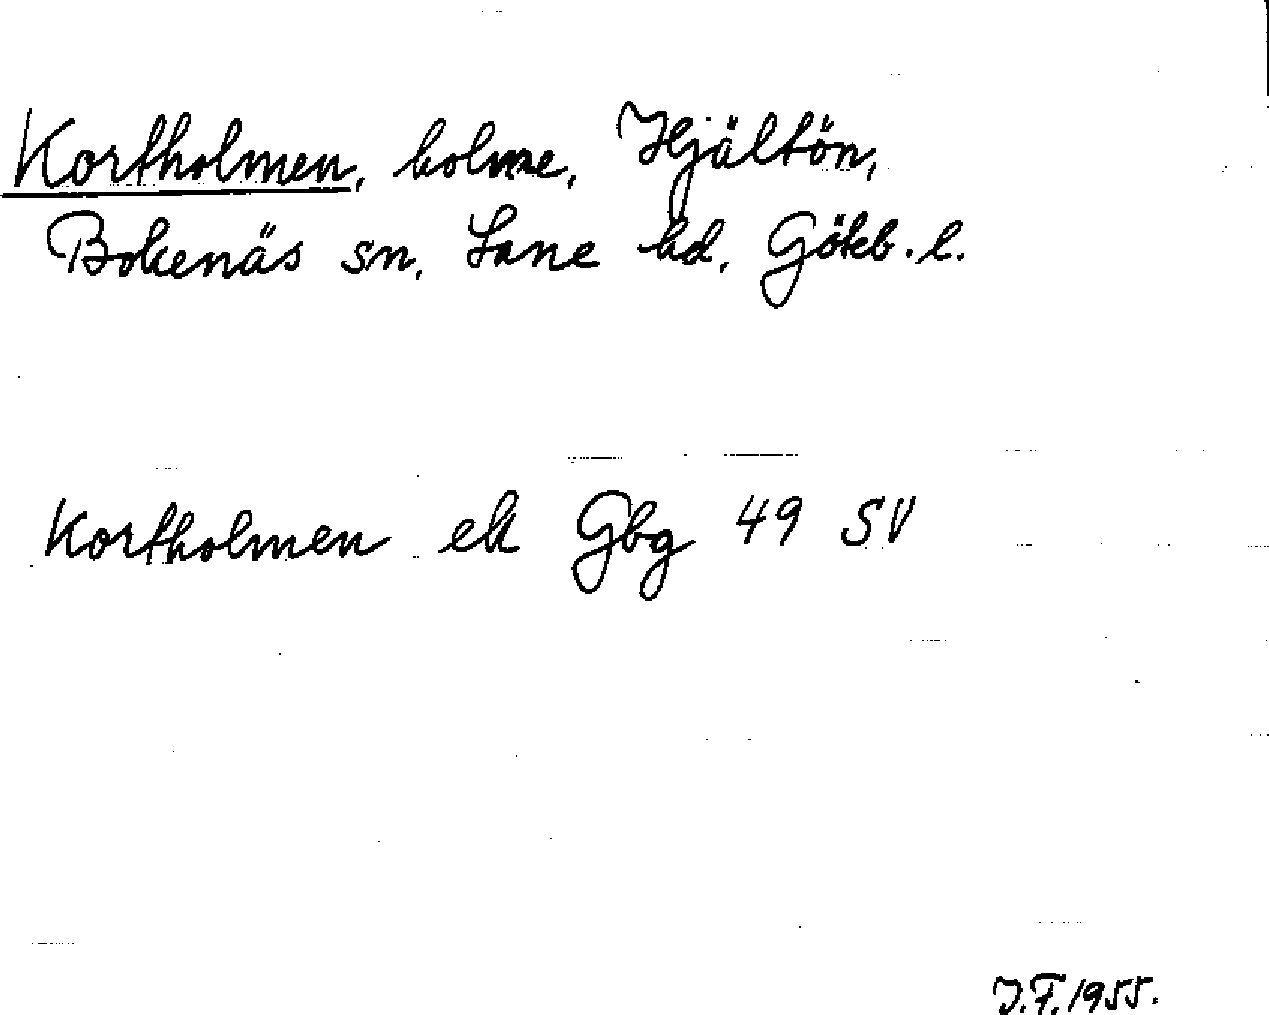 Kortholmen, holme, Hjältön,
Bokenäs sn, Lane hd, Göteb. l.
Kortholmen ek Gbg 49 SV
J.F. 1955.